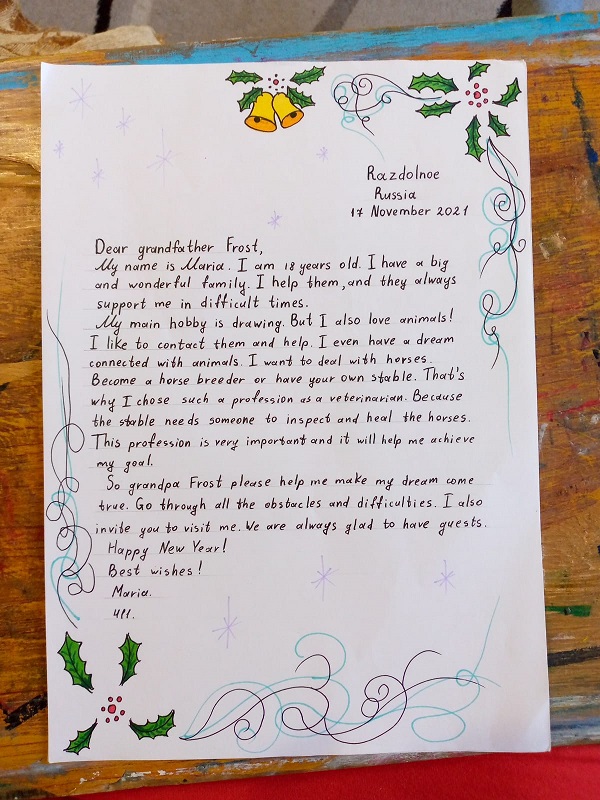 Razdolnoe
Russia
17 November 2021
Dear grandfather Frost,
My name is Maria. I am 18 years old. I have a big
and wonderful family. I help them, and they always
support me in difficult times.
My main hobby is drawing. But I also love animals!
I like to contact them and help. I even have a dream
connected with animals. I want to deal with horses.
Become a horse breeder or have your own stable. That's
why I chose such a profession as a veterinarian. Because
the stable needs someone to inspect and heal the horses.
This profession is very important and it will help me achieve
my goal.
So grandpa Frost please help me make my dream come
true. Go through all the obstacles and difficulties. I also
invite you to visit me. We are always glad to have guests.
Happy New Year!
Best wishes!
Maria.
411.